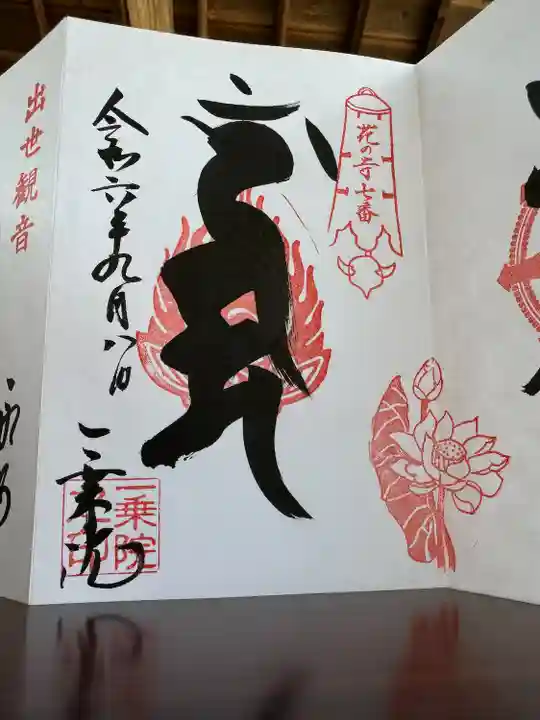 花の寺七番
令和六年九月八日
一乗院
一乗院之印
出世観音